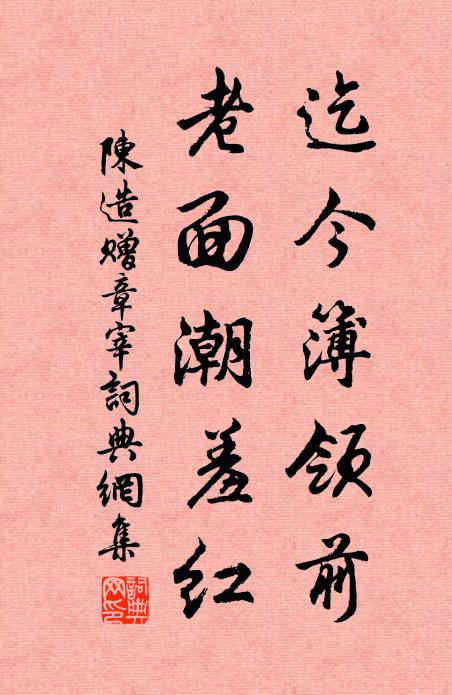 迄今簿領前
老面潮羞紅
陳造贈章宰詞典網集
詞典網印